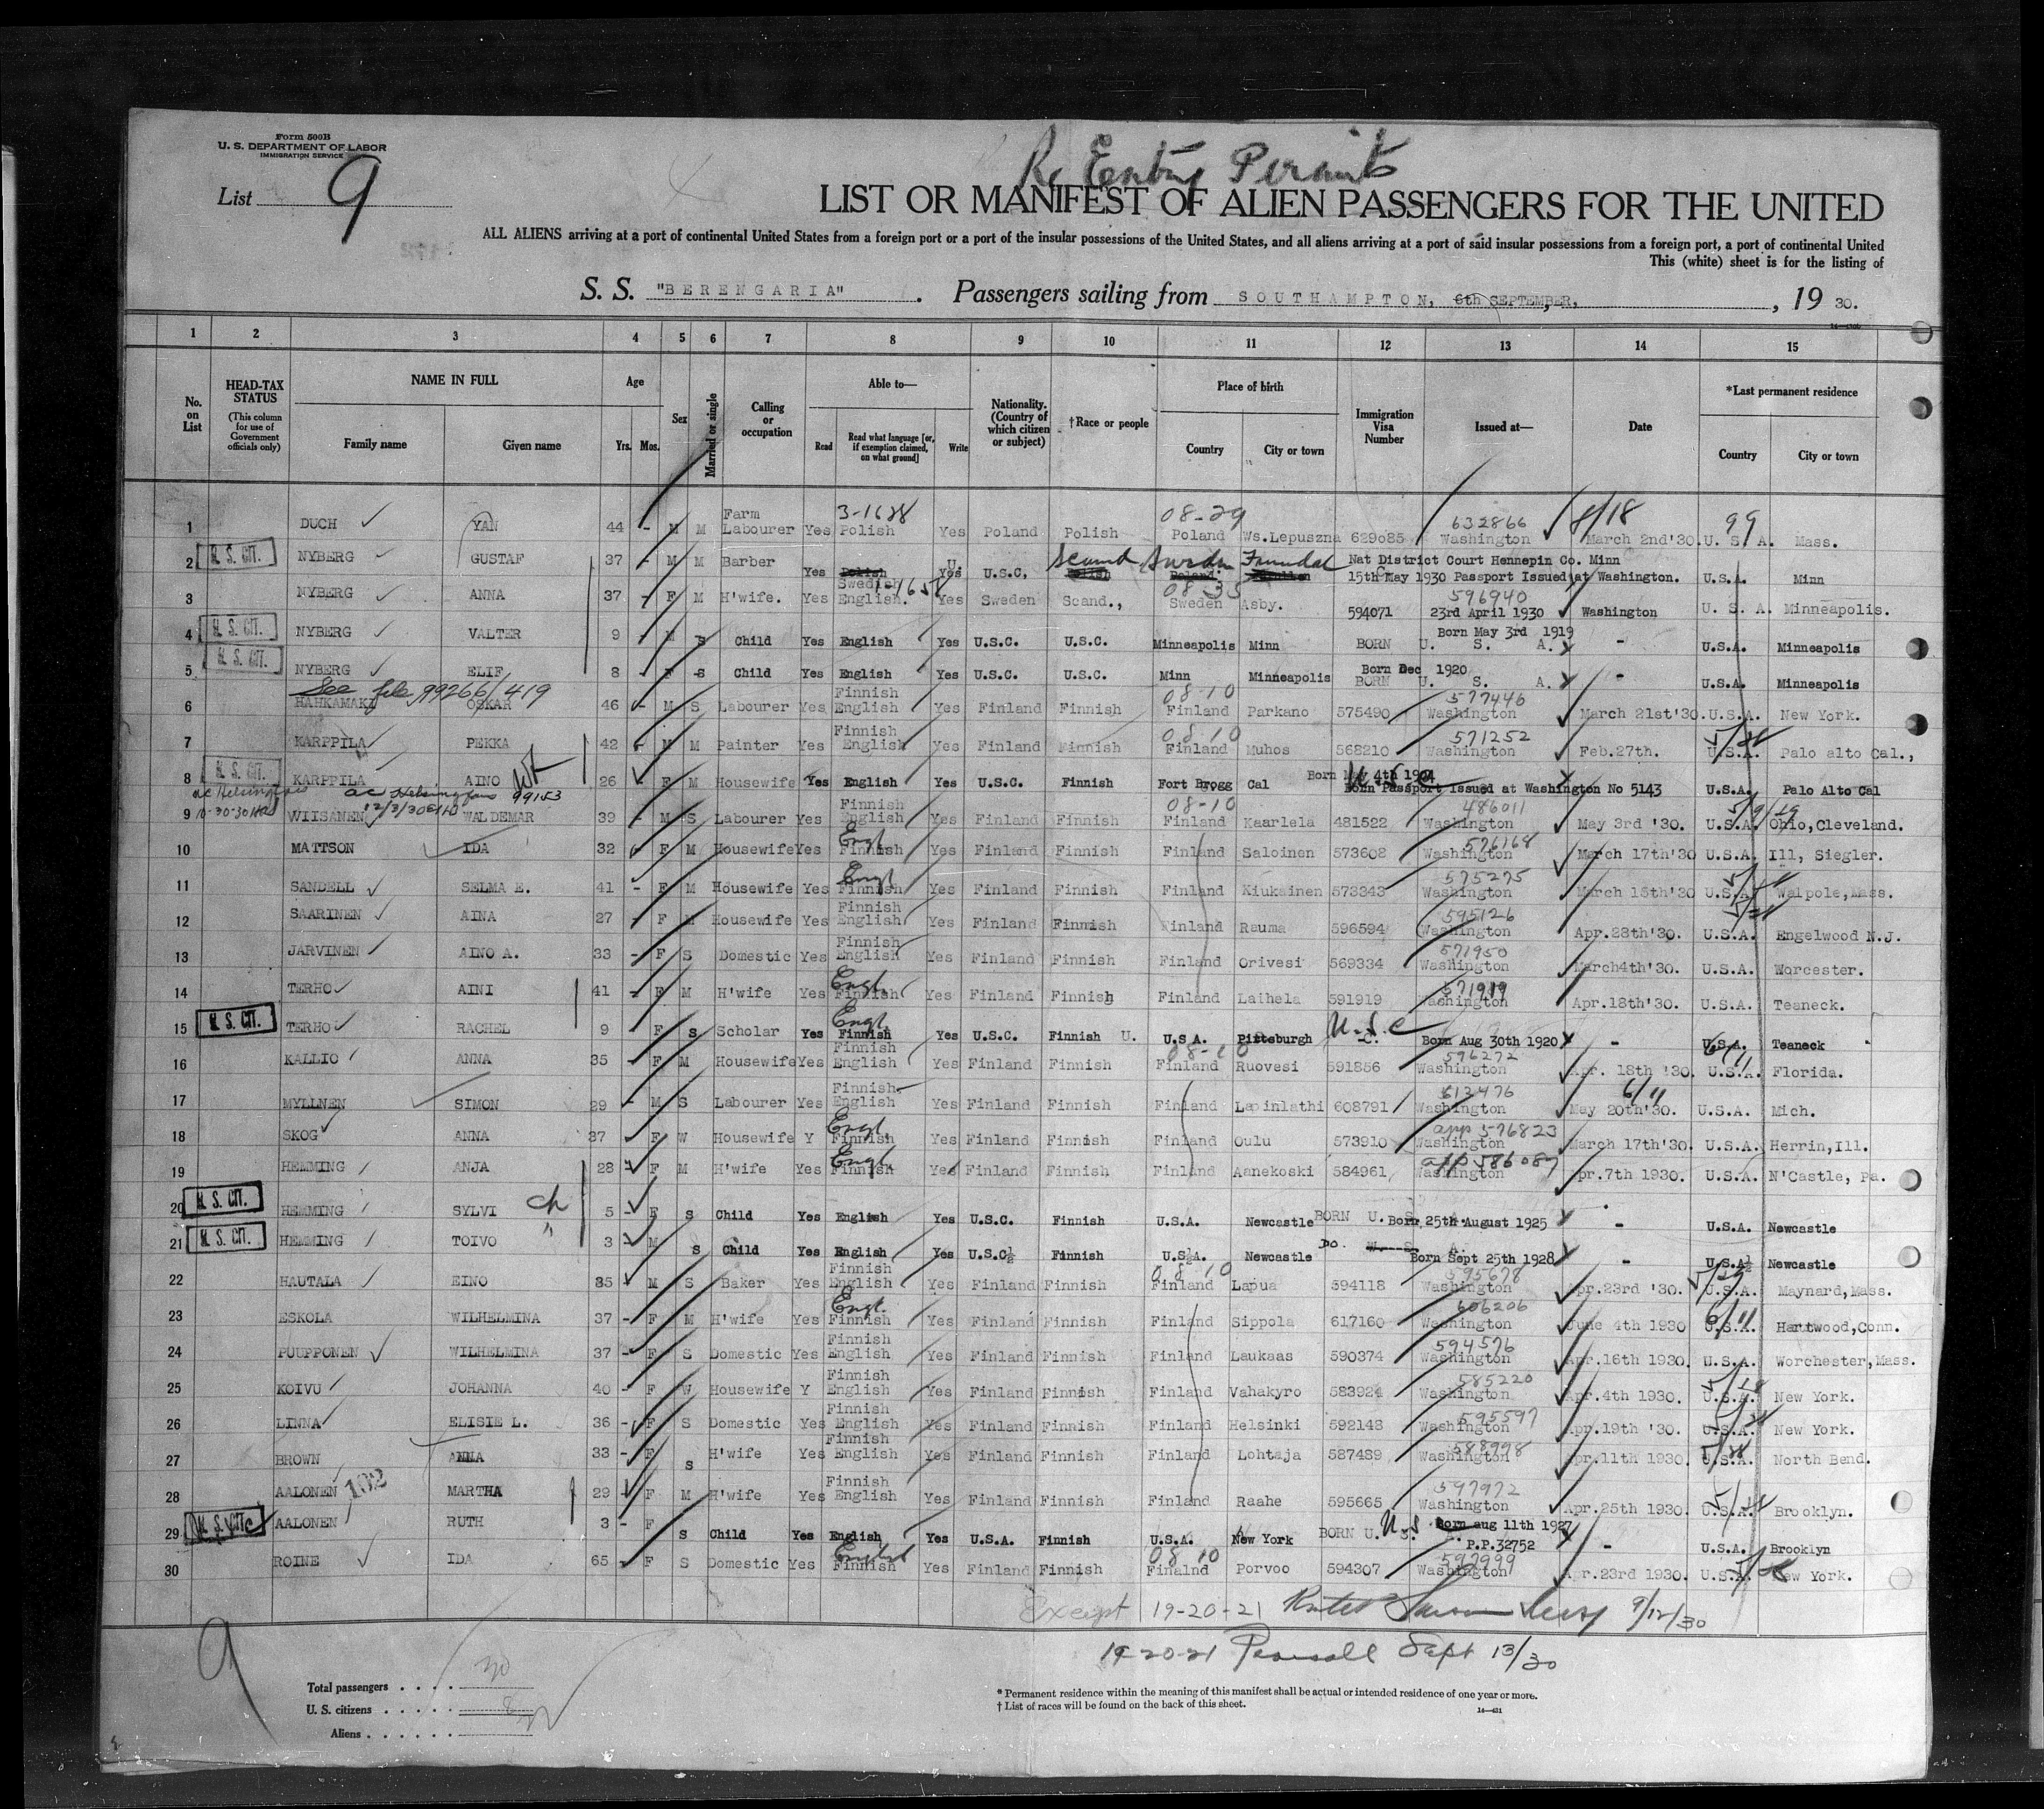 Form 500B
U. S. DEPARTMENT OF LABOR
IMMIGRATION SERVICE
List 9
Re Entry Permits
LIST OR MANIFEST OF ALIEN PASSENGERS FOR THE UNITED
ALL ALIENS arriving at a port of continental United States from a foreign port or a port of the insular possessions of the United States, and all aliens arriving at a port of said insular possessions from a foreign port, a port of continental United
This (white) sheet is for the listing of
S. S. "BERENGARIA". Passengers sailing from SOUTHAMPTON, 6th SEPTEMBER, , 19 30.
1 2 3 4 5 6 7 8 9 10 11 12 13 14 15
No. on List
HEAD-TAX STATUS (This column for use of Government officials only)
NAME IN FULL Family name Given name
Age Yrs. Mos.
Sex
Married or single
Calling or occupation
Able to— Read Read what language [or, if exemption claimed, on what ground] Write
Nationality. (Country of which citizen or subject)
†Race or people
Place of birth Country City or town
Immigration Visa Number
Issued at—
Date
*Last permanent residence Country City or town
3-1628 08-29 632866 8/18 99
1 DUCH YAN 44 - M M Farm Labourer Yes Polish Yes Poland Polish Poland Ws.Lepuszna 629085 Washington March 2nd'30. U. S. A. Mass.
2 U. S. CIT. NYBERG GUSTAF 37 - M M Barber Yes Polish Yes U.S.C. Polish Scand Poland Sweden Nat District Court Hennepin Co. Minn 15th May 1930 Passport Issued at Washington. U.S.A. Minn
08-35 596940
3 NYBERG ANNA 37 - F M H'wife. Yes Swedish English. Yes Sweden Scand., Sweden Asby. 594071 23rd April 1930 Washington U. S. A. Minneapolis.
4 U. S. CIT. NYBERG VALTER 9 - M S Child Yes English Yes U.S.C. U.S.C. Minneapolis Minn BORN U. S. A. Born May 3rd 1919 - U.S.A. Minneapolis
5 U. S. CIT. NYBERG ELIF 8 - F S Child Yes English Yes U.S.C. U.S.C. Minn Minneapolis BORN U. S. A. Born Dec 1920 - U.S.A. Minneapolis
See file 99266/419 08-10 577446
6 HAHKAMAKI OSKAR 46 - M S Labourer Yes Finnish English Yes Finland Finnish Finland Parkano 575490 Washington March 21st'30. U.S.A. New York.
08-10 571252 5/28
7 KARPPILA PEKKA 42 - M M Painter Yes Finnish English Yes Finland Finnish Finland Muhos 568210 Washington Feb.27th. U.S.A. Palo alto Cal.,
8 U. S. CIT. KARPPILA AINO 26 F M Housewife Yes English Yes U.S.C. Finnish Fort Brogg Cal Born May 4th 1904 U.S.C. Passport Issued at Washington No 5143 U.S.A. Palo Alto Cal
ac Helsingfors 10-30-30 ac Helsingfors 12/3/30 99153 08-10 486011 5/9/29
9 VIISANEN WALDEMAR 39 - M S Labourer Yes Finnish English Yes Finland Finnish Finland Kaarlela 481522 Washington May 3rd '30. U.S.A. Ohio,Cleveland.
Engl. 576168
10 MATTSON IDA 32 F M Housewife Yes Finnish Yes Finland Finnish Finland Saloinen 573602 Washington March 17th'30 U.S.A. Ill, Siegler.
Engl 575275
11 SANDELL SELMA E. 41 - F M Housewife Yes Finnish Yes Finland Finnish Finland Kiukainen 573343 Washington March 15th'30 U.S.A. Walpole,Mass.
595126
12 SAARINEN AINA 27 - F M Housewife Yes Finnish English Yes Finland Finnish Finland Rauma 596594 Washington Apr.28th'30. U.S.A. Engelwood N.J.
571950
13 JARVINEN AINO A. 33 - F S Domestic Yes Finnish English Yes Finland Finnish Finland Orivesi 569334 Washington March4th'30. U.S.A. Worcester.
Engl. 571919
14 TERHO AINI 41 - F M H'wife Yes Finnish Yes Finland Finnish Finland Laihela 591919 Washington Apr.18th'30. U.S.A. Teaneck.
Engl. U.S.C
15 U. S. CIT. TERHO RACHEL 9 F S Scholar Yes Finnish Yes U.S.C. Finnish U. U.S A. Pittsburgh -C. Born Aug 30th 1920 - U.S.A. Teaneck
08-10 596272 6/11
16 KALLIO ANNA 35 - F M Housewife Yes Finnish English Yes Finland Finnish Finland Ruovesi 591856 Washington Apr. 18th '30. U.S.A. Florida.
613476 6/11
17 MYLLNEN SIMON 29 - M S Labourer Yes Finnish English Yes Finland Finnish Finland Lapinlathi 608791 Washington May 20th'30. U.S.A. Mich.
Engl. app 576823
18 SKOG ANNA 37 F W Housewife Y Finnish Yes Finland Finnish Finland Oulu 573910 Washington March 17th'30 U.S.A. Herrin,Ill.
Engl app 586087
19 HEMMING ANJA 28 F M H'wife Yes Finnish Yes Finland Finnish Finland Aanekoski 584961 Washington Apr.7th 1930. U.S.A. N'Castle, Pa.
20 U. S. CIT. HEMMING SYLVI ch 5 - F S Child Yes English Yes U.S.C. Finnish U.S.A. Newcastle BORN U. S. A. Born 25th August 1925 - U.S.A. Newcastle
21 U. S. CIT. HEMMING TOIVO " 3 - M S Child Yes English Yes U.S.C½ Finnish U.S½A. Newcastle DO. U. S. A. Born Sept 25th 1928 - U.S.A½ Newcastle
08-10 595678 5/29
22 HAUTALA EINO 35 M S Baker Yes Finnish English Yes Finland Finnish Finland Lapua 594118 Washington Apr.23rd '30. U.S.A. Maynard,Mass.
Engl. 606206 6/11
23 ESKOLA WILHELMINA 37 - F M H'wife Yes Finnish Yes Finland Finnish Finland Sippola 617160 Washington June 4th 1930 U.S.A. Hartwood,Conn.
594576
24 PUUPPONEN WILHELMINA 37 - F S Domestic Yes Finnish English Yes Finland Finnish Finland Laukaas 590374 Washington Apr.16th 1930. U.S.A. Worchester,Mass.
585220 5/28
25 KOIVU JOHANNA 40 - F W Housewife Y Finnish English Yes Finland Finnish Finland Vahakyro 583924 Washington Apr.4th 1930. U.S.A. New York.
595597 5/28
26 LINNA ELISIE L. 36 - F S Domestic Yes Finnish English Yes Finland Finnish Finland Helsinki 592143 Washington Apr.19th '30. U.S.A. New York.
588998 5/28
27 BROWN ANNA 33 - F S H'wife Yes Finnish English Yes Finland Finnish Finland Lohtaja 587489 Washington Apr.11th 1930. U.S.A. North Bend.
102 597972 5/28
28 AALONEN MARTHA 29 F M H'wife Yes Finnish English Yes Finland Finnish Finland Raahe 595665 Washington Apr.25th 1930. U.S.A. Brooklyn.
29 U. S. CIT. AALONEN RUTH 3 - F S Child Yes English Yes U.S.A. Finnish U.S.A. New York BORN U.S. Born aug 11th 1927 P.P.32752 - U.S.A. Brooklyn
English 08 10 592999 5/28
30 ROINE IDA 65 - F S Domestic Yes Finnish Yes Finland Finnish Finalnd Porvoo 594307 Washington Apr.23rd 1930. U.S.A. New York.
Except 19-20-21 9/12/30
19-20-21 Sept 13/30
9
Total passengers . . . . 30
U. S. citizens . . . . . 8
Aliens . . . . . . 22
* Permanent residence within the meaning of this manifest shall be actual or intended residence of one year or more.
† List of races will be found on the back of this sheet.
14—431